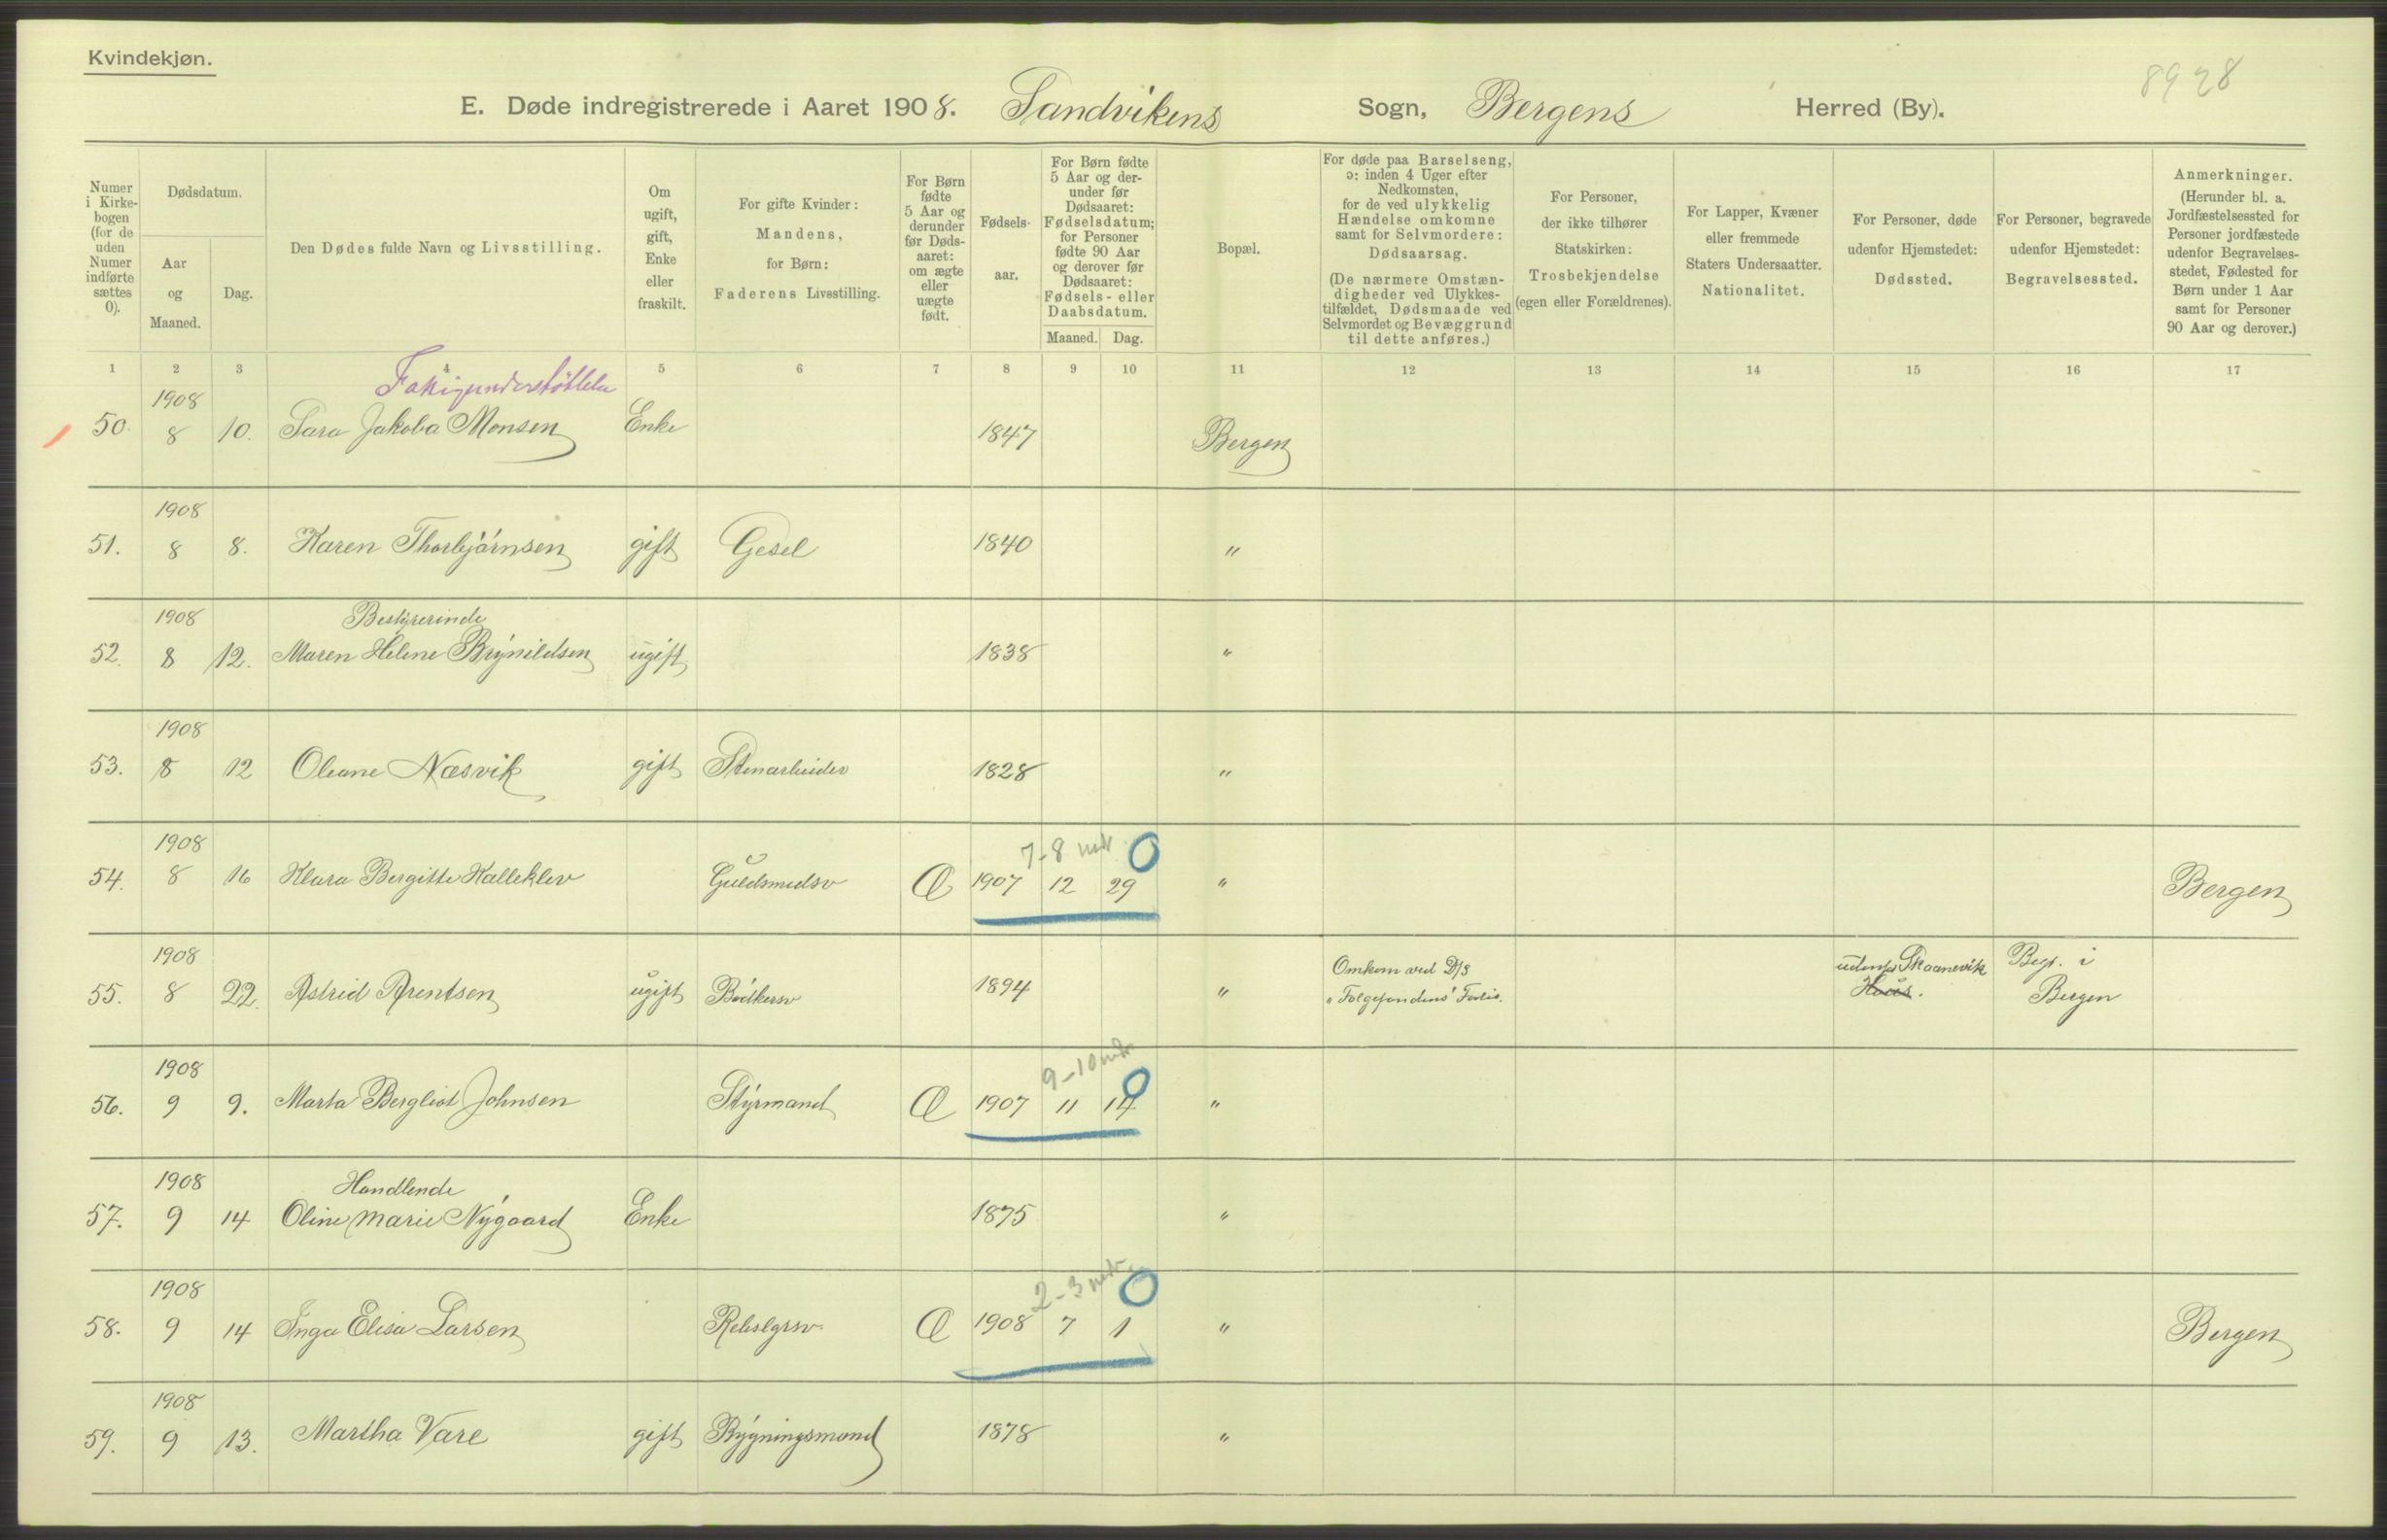 Kvindekjøn.
8928
E. Døde indregistrerede i Aaret 1908. Sandvikens Sogn, Bergens Herred (By).
Numer i Kirke-bogen (for de uden Numer indførte sættes 0).
Dødsdatum.
Aar og Maaned.
Dag.
Den Dødes fulde Navn og Livsstilling.
Om ugift, gift, Enke eller fraskilt.
For gifte Kvinder: Mandens, for Børn: Faderens Livsstilling.
For Børn fødte 5 Aar og derunder før Døds-aaret: om ægte eller uægte født.
Fødsels-aar.
For Børn fødte 5 Aar og der-under før Dødsaaret: Fødselsdatum; for Personer fødte 90 Aar og derover før Dødsaaret: Fødsels- eller Daabsdatum.
Maaned. Dag.
Bopæl.
For døde paa Barselseng, ɔ: inden 4 Uger efter Nedkomsten, for de ved ulykkelig Hændelse omkomne samt for Selvmordere: Dødsaarsag. (De nærmere Omstæn-digheder ved Ulykkes-tilfældet, Dødsmaade ved Selvmordet og Bevæggrund til dette anføres.)
For Personer, der ikke tilhører Statskirken: Trosbekjendelse (egen eller Forældrenes).
For Lapper, Kvæner eller fremmede Staters Undersaatter. Nationalitet.
For Personer, døde udenfor Hjemstedet: Dødssted.
For Personer, begravede udenfor Hjemstedet: Begravelsessted.
Anmerkninger. (Herunder bl. a. Jordfæstelsessted for Personer jordfæstede udenfor Begravelses-stedet, Fødested for Børn under 1 Aar samt for Personer 90 Aar og derover.)
1 2 3 4 5 6 7 8 9 10 11 12 13 14 15 16 17
1908
50. 8 10. Sara Jakoba Monsen Enke 1847 Bergen
1908
51. 8 8. Karen Thorbjørnsen gift Gesel 1840 "
1908 Bestyrerinde
52. 8 12. Maren Helene Brynildsen ugift 1838 "
1908
53. 8 12 Oleane Næsvik gift Stenarbeider 1828 "
1908 7-8 mdr 0
54. 8 16 Klara Bergitte Kalleklev Guldsmedsv Æ 1907 12 29 " Bergen
1908 Omkom ved D/S udenfor Skaanevik Begr. i
55. 8 22. Astrid Arentsen ugift Bødkersv 1894 " "Folgefondens" Forlis. Bergen
1908 9-10 mdr 0
56. 9 9. Marta Bergliot Johnsen Styrmand Æ 1907 11 14 "
1908 Handlende
57. 9 14 Oline Marie Nygaard Enke 1875 "
1908 2-3 mdr. 0
58. 9 14 Inga Elisa Larsen Rebslgrsv. Æ 1908 7 1 " Bergen
1908
59. 9 13. Martha Vare gift Bygningsmand 1878 "